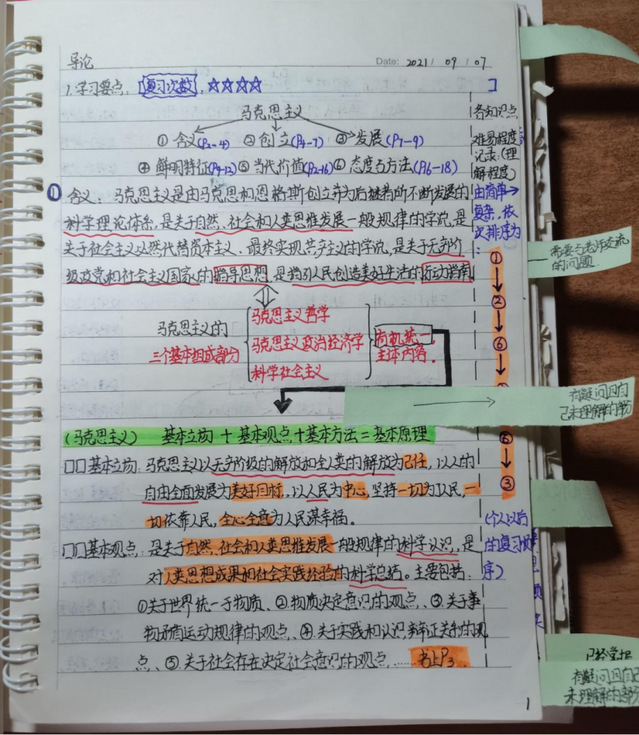 导论
Date: 2021 / 09 / 07
1. 学习要点: 复习次数: ☆☆☆☆
马克思主义
① 含义(P2-4) ② 创立(P4-7) ③ 发展(P7-9)
④ 鲜明特征(P9-12) ⑤ 当代价值(P12-16) ⑥ 态度与方法(P16-18)
① 含义: 马克思主义是由马克思和恩格斯创立并为后继者所不断发展的
科学理论体系,是关于自然、社会和人类思维发展一般规律的学说,是
关于社会主义必然代替资本主义、最终实现共产主义的学说,是关于无产阶
级政党和社会主义国家的指导思想,是指引人民创造美好生活的行动指南
马克思主义的
三个基本组成部分
马克思主义哲学
马克思主义政治经济学
科学社会主义
有机统一
主体内容。
(马克思主义) 基本立场 + 基本观点 + 基本方法 = 基本原理
□□基本立场: 马克思主义以无产阶级的解放和全人类的解放为己任, 以人的
自由全面发展为美好目标, 以人民为中心, 坚持一切为了人民, 一
切依靠人民, 全心全意为人民谋幸福。
□□基本观点: 是关于自然、社会和人类思维发展一般规律的科学认识, 是
对人类思想成果和社会实践经验的科学总结。主要包括:
①关于世界统一于物质、②物质决定意识的观点、③关于事
物矛盾运动规律的观点、④关于实践和认识辩证关系的观
点、⑤关于社会存在决定社会意识的观点, ...... 书上P3
各知识点
难易程度
记录(理
解程度)
由简单→
复杂, 依
次排序为
:
①
②
⑥
⑤
③
(个人以后
的复习顺
序)
需要与老师交流
的问题
有疑问回
己未理解的
有疑问回自己
未理解的部分
1